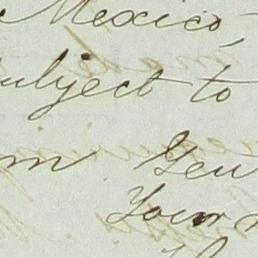 Mexico,
subject to
Gen
Your